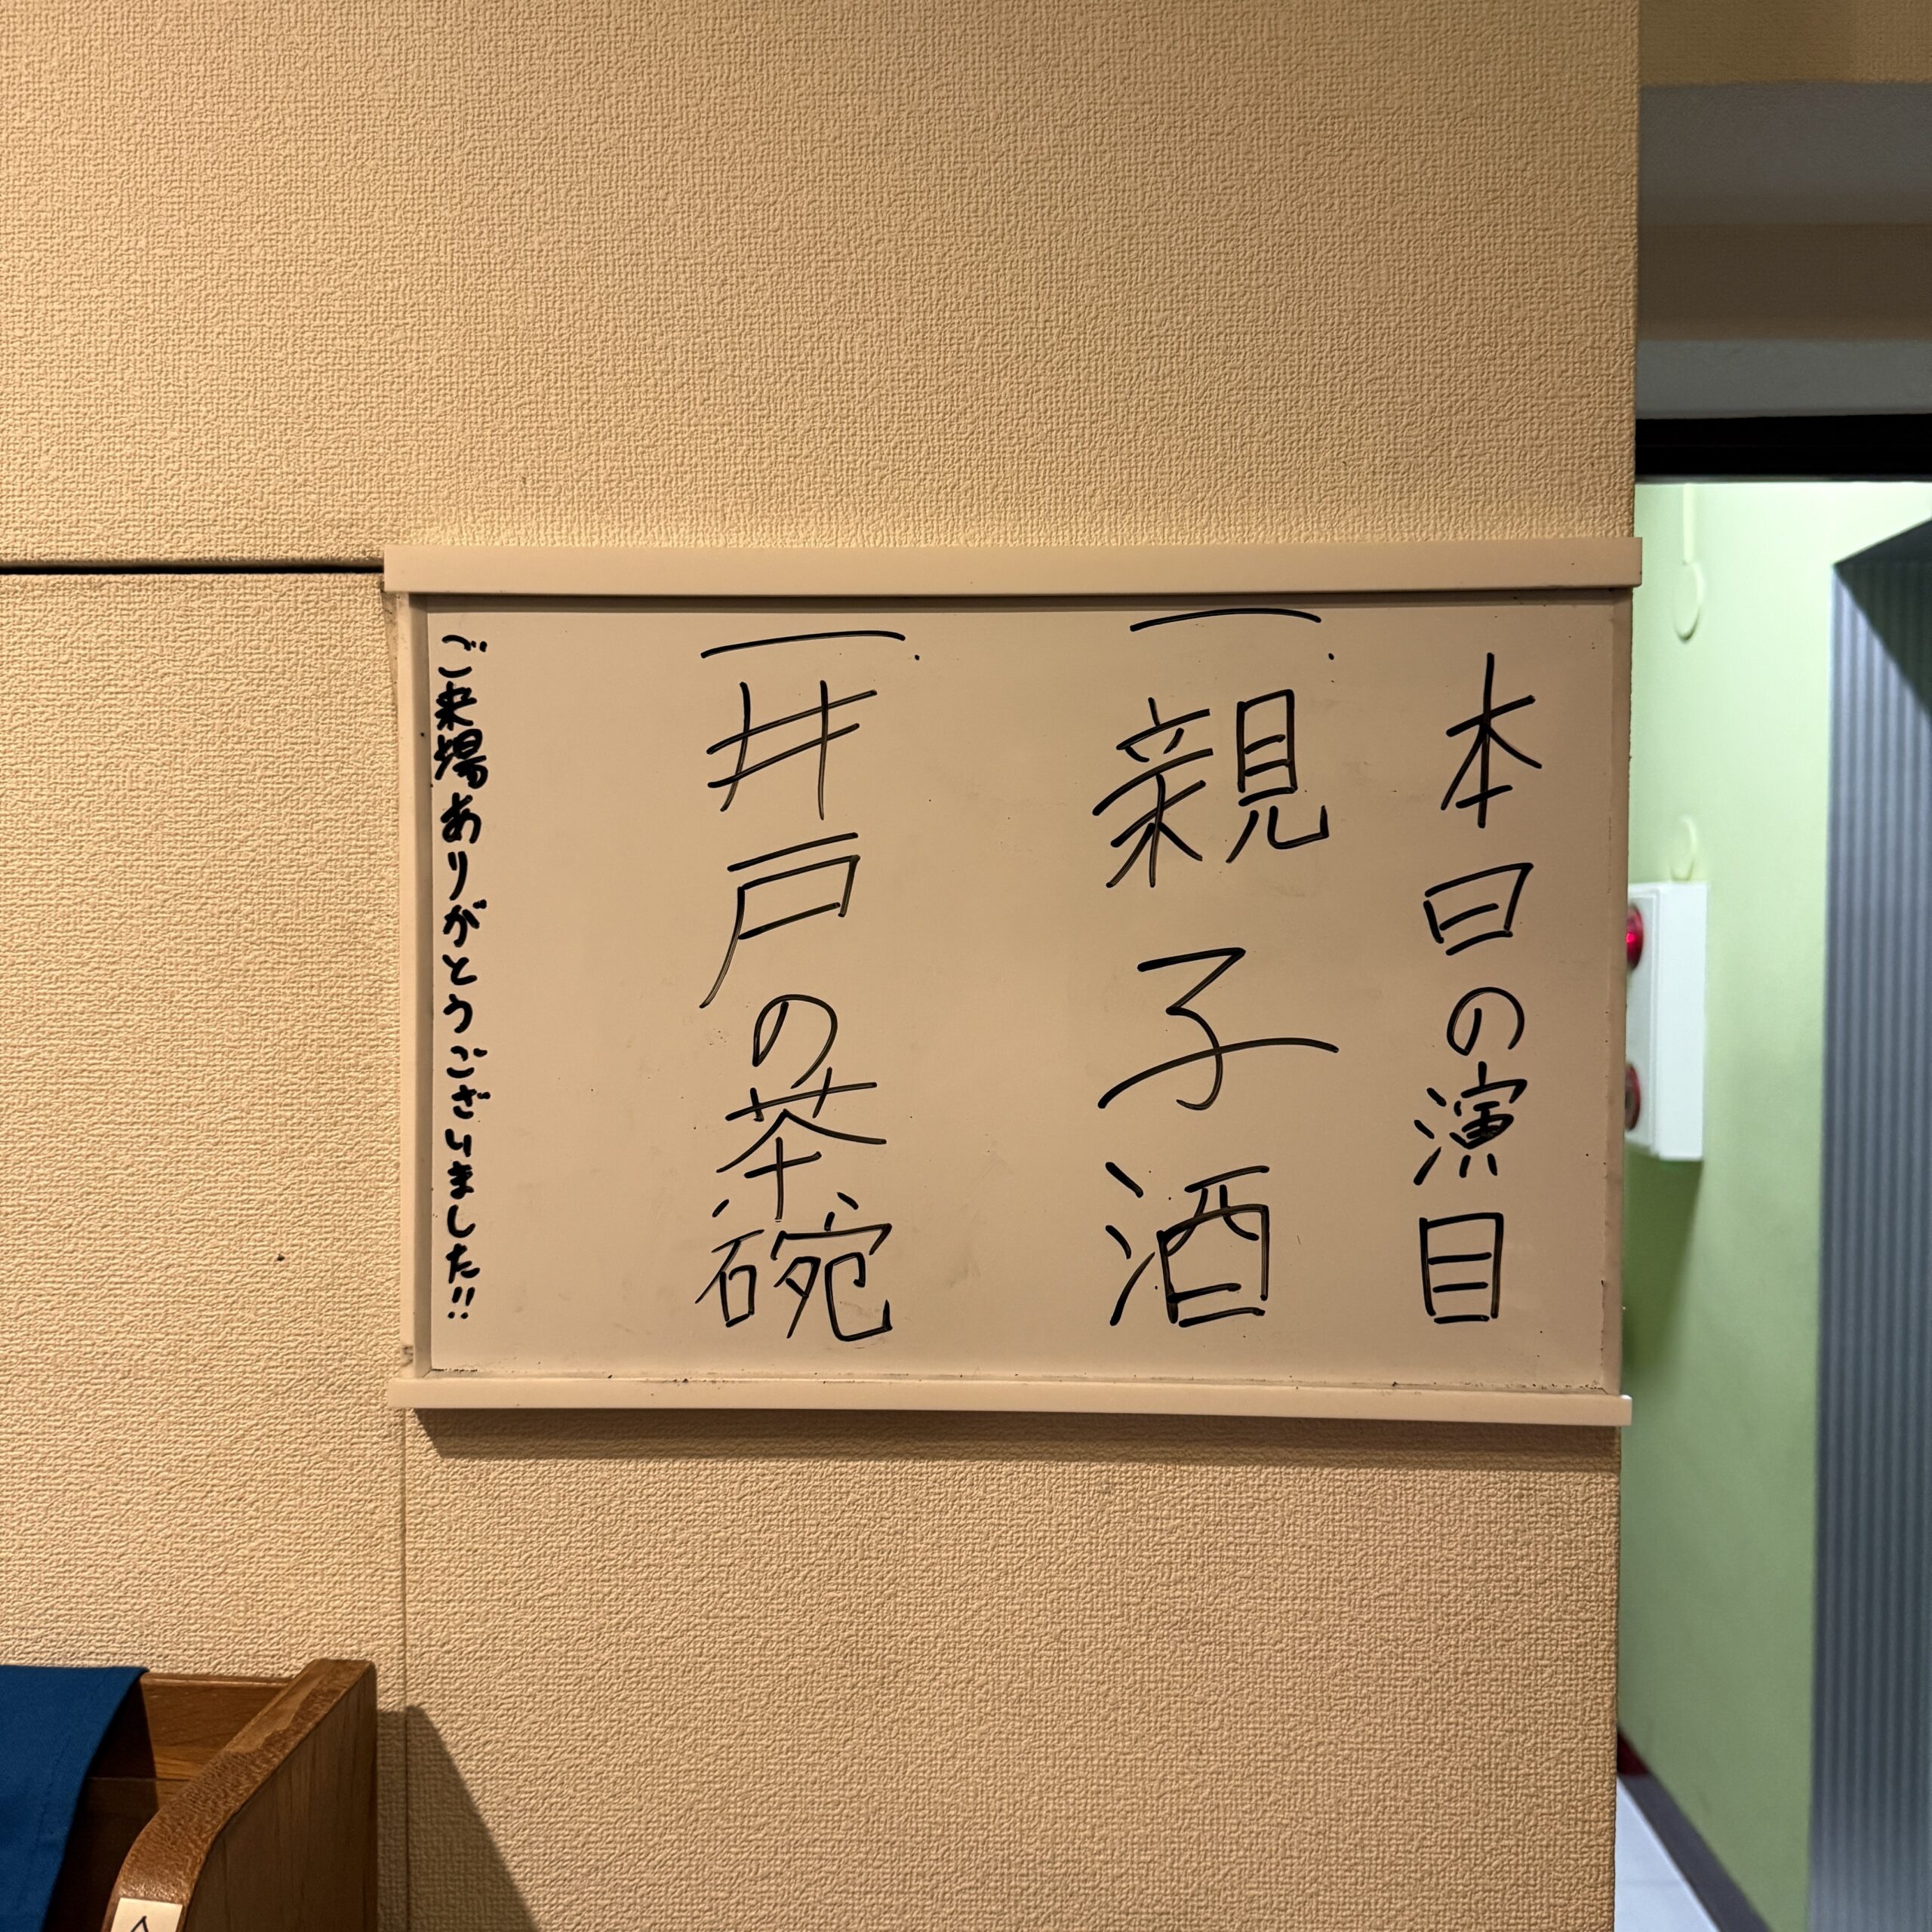 本日の演目
一、親子酒
一、井戸の茶碗
ご来場ありがとうございました!!